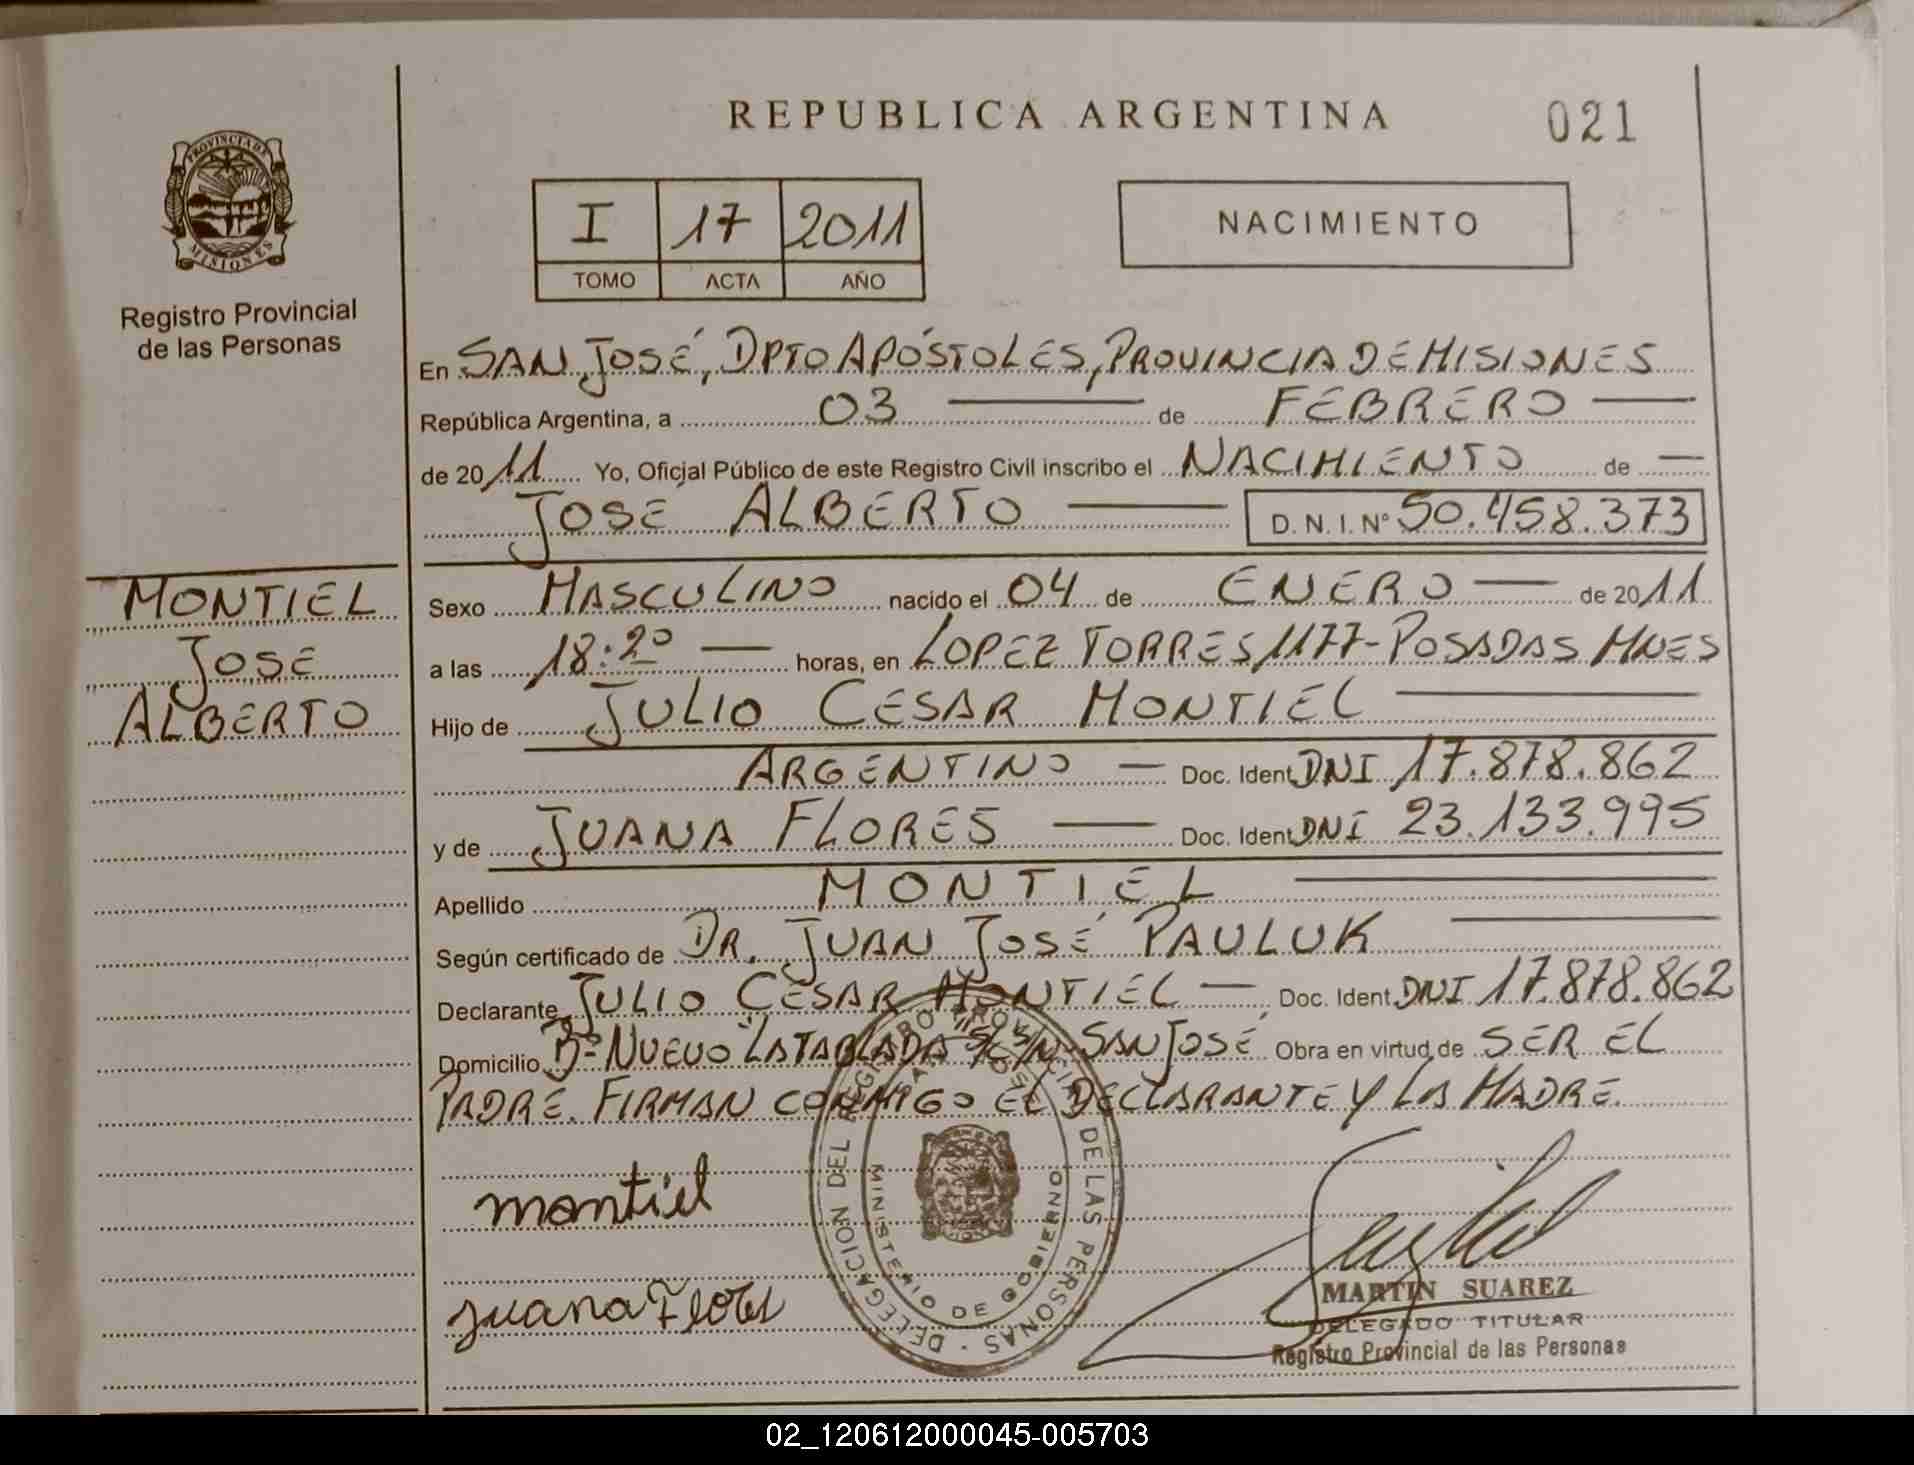 REPUBLICA ARGENTINA
021
PROVINCIA DE
MISIONES
Registro Provincial
de las Personas
I 17 2011
TOMO ACTA AÑO
NACIMIENTO
En SAN JOSÉ, DPTO APÓSTOLES, PROVINCIA DE MISIONES
República Argentina, a 03 de FEBRERO
de 2011 Yo, Oficial Público de este Registro Civil inscribo el NACIMIENTO de
JOSÉ ALBERTO D. N. I. Nº 50.458.373
MONTIEL
JOSÉ
ALBERTO
Sexo MASCULINO nacido el 04 de ENERO de 2011
a las 18:20 horas, en LOPEZ TORRES 1177-POSADAS MNES
Hijo de JULIO CESAR MONTIEL
ARGENTINO Doc. Ident. DNI 17.878.862
y de JUANA FLORES Doc. Ident. DNI 23.133.995
Apellido MONTIEL
Según certificado de DR. JUAN JOSÉ PAULUK
Declarante JULIO CESAR MONTIEL Doc. Ident. DNI 17.878.862
Domicilio Bº NUEVO "LA TABLADA" S/C S/N-SAN JOSÉ Obra en virtud de SER EL
PADRE. FIRMAN CONMIGO EL DECLARANTE Y LA MADRE.
montiel
juana Flores
DELEGACION DEL REGISTRO PROVINCIAL DE LAS PERSONAS
MINISTERIO DE GOBIERNO
MARTIN SUAREZ
DELEGADO TITULAR
Registro Provincial de las Personas
02_120612000045-005703